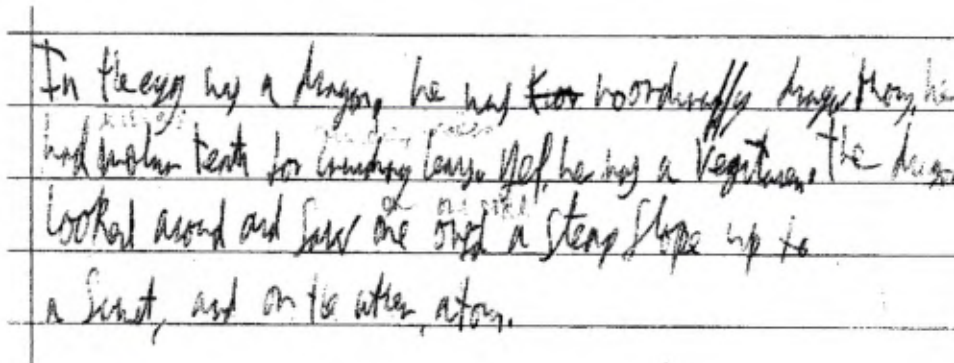 In the egg was a dragon, he was dragon though, he
had molar teeth for crunching leaves. Yes, he was a Vegitaren. The dragon
looked around and saw one a steap slope up to
a , and on the other, a town.